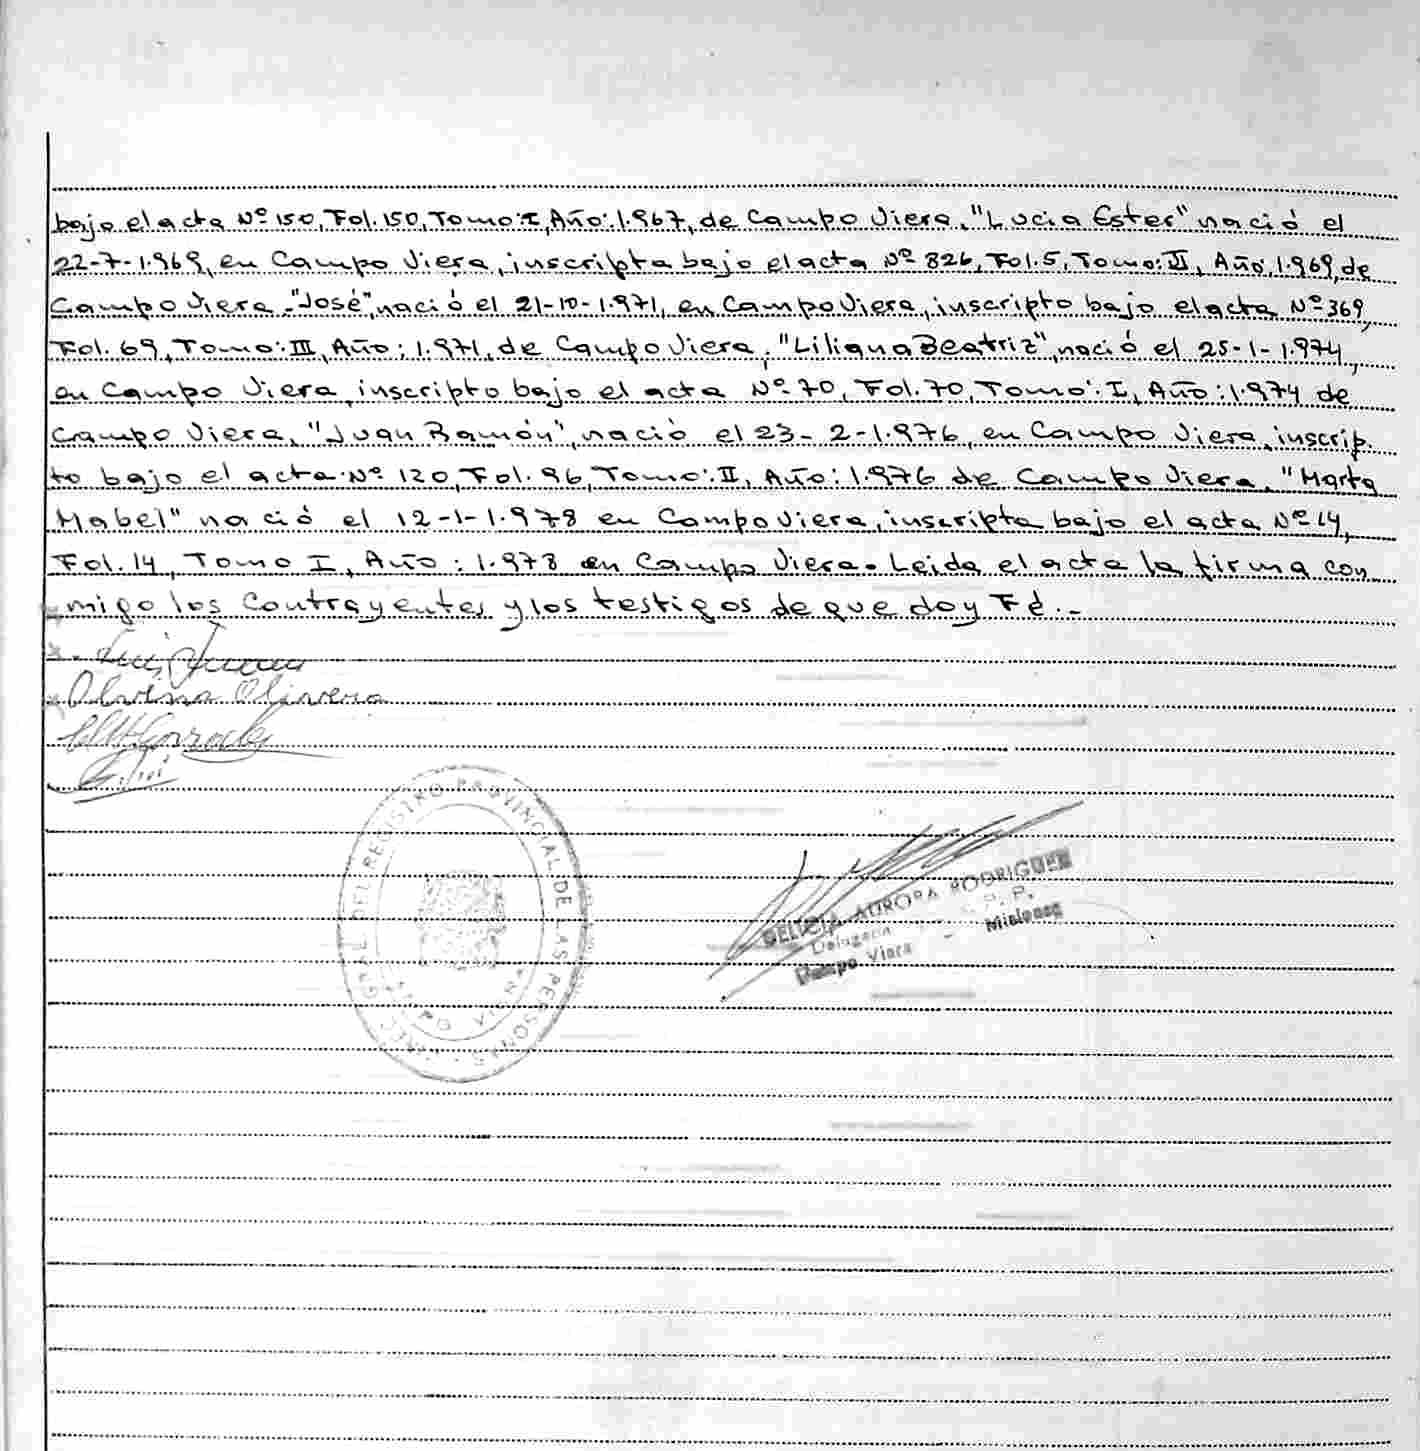 bajo el acta Nº 150, Fol. 150, Tomo: I, Año: 1.967, de Campo Viera, "Lucia Ester" nació el
22-7-1.969, en Campo Viera, inscripta bajo el acta Nº 826, Fol. 5, Tomo: VI, Año, 1.969, de
Campo Viera. "José", nació el 21-10-1.971, en Campo Viera, inscripto bajo el acta Nº 369,
Fol. 69, Tomo: III, Año: 1.971, de Campo Viera, "Liliana Beatriz", nació el 25-1-1.974,
en Campo Viera, inscripto bajo el acta Nº 70, Fol. 70, Tomo: I, Año: 1.974 de
Campo Viera, "Juan Ramón", nació el 23-2-1.976, en Campo Viera, inscrip-
to bajo el acta Nº 120, Fol. 96, Tomo: II, Año: 1.976 de Campo Viera. "Marta
Mabel" nació el 12-1-1.978 en Campo Viera, inscripta bajo el acta Nº 14,
Fol. 14, Tomo I, Año: 1.978 en Campo Viera. Leida el acta la firma con
migo los Contrayentes y los testigos de que doy Fé.-
Luis
Olivera
DEL REGISTRO PROVINCIAL DE LAS PERSONAS
AURORA RODRIGUEZ
Campo Viera - Misiones